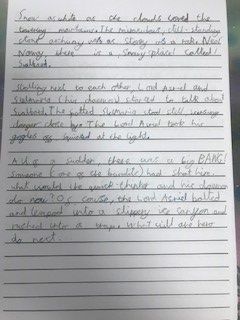 Snow as white as the clouds coverd the
towering mountains. The m still standing
stone archway was as stoney as a rock. Next
Nowy, there is a snowy place! Called!
Svalbard.
Strolling next to each other, Lord Asriel and
Stelmaria (his daemon) started to talk about
Svalbard. The Stelmaria stood still, sensing
danger close by. The Lord Asriel took his
goggles squinted at the light.
All of a sudden, there was a big BANG!
Someone (one of the bandits) had shot him.
what would the quick thinker and his daemon
do now? Of course, the Lord Asriel bolted
and leaped into a slippery ice canyon and
rushed into a What will are hero
do next.